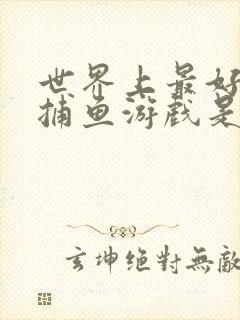 世界上最好
捕鱼游戏是
玄坤绝對無敵